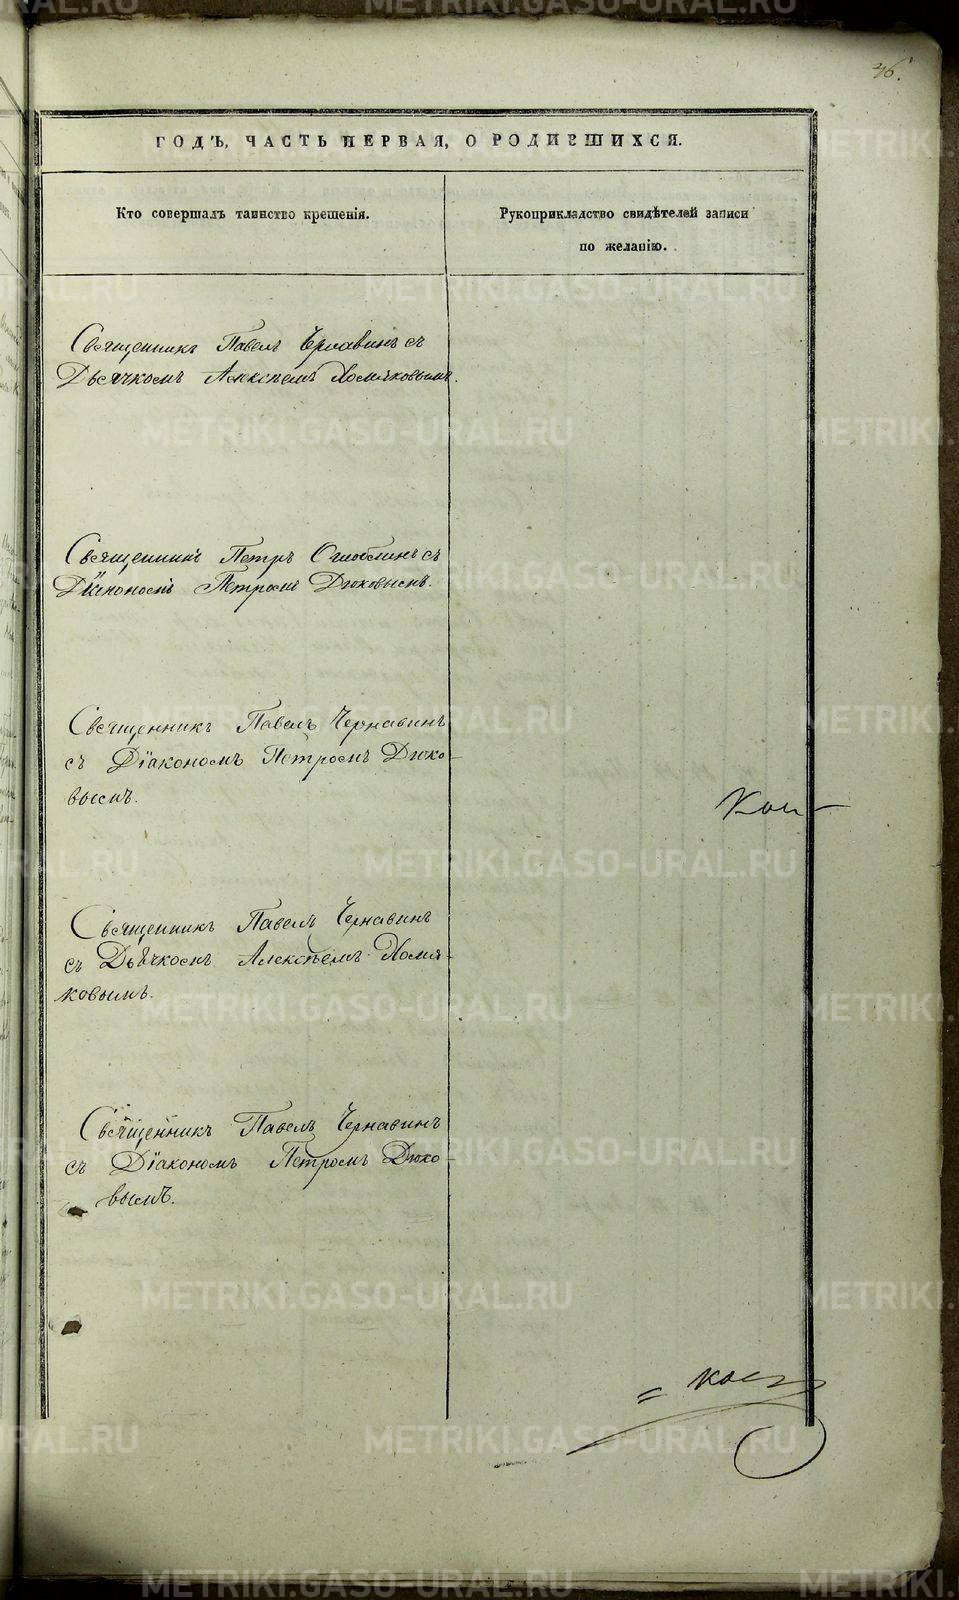 36.
ГОДЪ, ЧАСТЬ ПЕРВАЯ, О РОДИВШИХСЯ.
Кто совершалъ таинство крещенія.
Рукоприкладство свидѣтелей записи
по желанію.
Священникъ Павелъ Чернавинъ съ
Дьячкомъ Алексѣемъ Хомяковымъ.
Священникъ Петръ Оглоблинъ съ
Діакономъ Петромъ Дюковымъ.
Священникъ Павелъ Чернавинъ
съ Діакономъ Петромъ Дюко-
вымъ.
Священникъ Павелъ Чернавинъ
съ Дьячкомъ Алексѣемъ Хомя-
ковымъ.
Священникъ Павелъ Чернавинъ
съ Діакономъ Петромъ Дюко-
вымъ.
METRIKI.GASO-URAL.RU